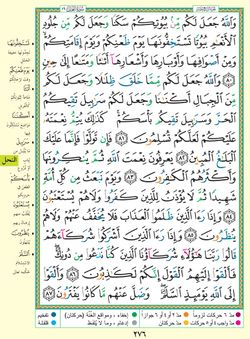 وَٱللَّهُ جَعَلَ لَكُم مِّنۢ بُيُوتِكُمْ سَكَنًا وَجَعَلَ لَكُم مِّن جُلُودِ
ٱلْأَنْعَٰمِ بُيُوتًا تَسْتَخِفُّونَهَا يَوْمَ ظَعْنِكُمْ وَيَوْمَ إِقَامَتِكُمْ
وَمِنْ أَصْوَافِهَا وَأَوْبَارِهَا وَأَشْعَارِهَآ أَثَٰثًا وَمَتَٰعًا إِلَىٰ حِينٍ
٨٠ وَٱللَّهُ جَعَلَ لَكُم مِّمَّا خَلَقَ ظِلَٰلًا وَجَعَلَ لَكُم
مِّنَ ٱلْجِبَالِ أَكْنَٰنًا وَجَعَلَ لَكُمْ سَرَٰبِيلَ تَقِيكُمُ
ٱلْحَرَّ وَسَرَٰبِيلَ تَقِيكُم بَأْسَكُمْ كَذَٰلِكَ يُتِمُّ نِعْمَتَهُۥ
عَلَيْكُمْ لَعَلَّكُمْ تُسْلِمُونَ ٨١ فَإِن تَوَلَّوْا۟ فَإِنَّمَا عَلَيْكَ
ٱلْبَلَٰغُ ٱلْمُبِينُ ٨٢ يَعْرِفُونَ نِعْمَتَ ٱللَّهِ ثُمَّ يُنكِرُونَهَا
وَأَكْثَرُهُمُ ٱلْكَٰفِرُونَ ٨٣ وَيَوْمَ نَبْعَثُ مِن كُلِّ أُمَّةٍ
شَهِيدًا ثُمَّ لَا يُؤْذَنُ لِلَّذِينَ كَفَرُوا۟ وَلَا هُمْ يُسْتَعْتَبُونَ
٨٤ وَإِذَا رَءَا ٱلَّذِينَ ظَلَمُوا۟ ٱلْعَذَابَ فَلَا يُخَفَّفُ عَنْهُمْ وَلَا هُمْ
يُنظَرُونَ ٨٥ وَإِذَا رَءَا ٱلَّذِينَ أَشْرَكُوا۟ شُرَكَآءَهُمْ قَالُوا۟
رَبَّنَا هَٰٓؤُلَآءِ شُرَكَآؤُنَا ٱلَّذِينَ كُنَّا نَدْعُوا۟ مِن دُونِكَ
فَأَلْقَوْا۟ إِلَيْهِمُ ٱلْقَوْلَ إِنَّكُمْ لَكَٰذِبُونَ ٨٦ وَأَلْقَوْا۟
إِلَى ٱللَّهِ يَوْمَئِذٍ ٱلسَّلَمَ وَضَلَّ عَنْهُم مَّا كَانُوا۟ يَفْتَرُونَ ٨٧
النحل
تفخيم
قلقلة
٢٧٦